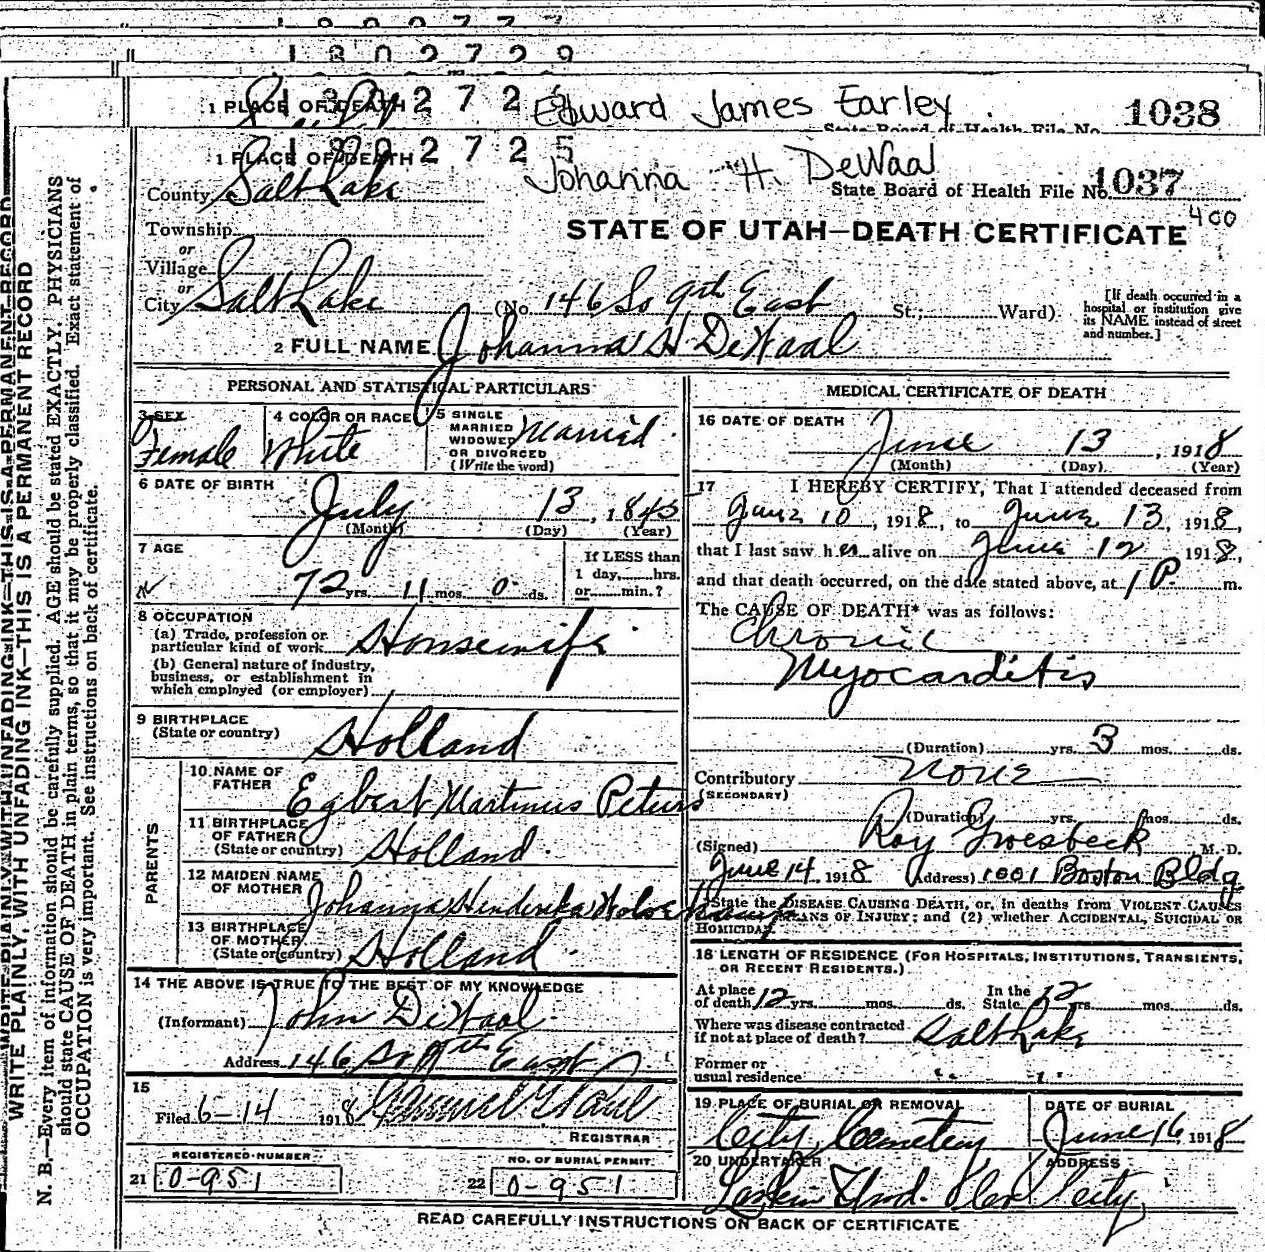 1 8 0 2 7 2 9
1 PLACE OF DEATH Edward James Earley 1038
State Board of Health File No.
1 PLACE OF DEATH
Johanna H. DeWaal
County Salt Lake State Board of Health File No. 1037
400
Township
STATE OF UTAH—DEATH CERTIFICATE
or
Village
or
City Salt Lake (No. 146 So 9th East St.; Ward)
[If death occurred in a hospital or institution give its NAME instead of street and number.]
2 FULL NAME Johanna H DeWaal
PERSONAL AND STATISTICAL PARTICULARS
3 SEX Female
4 COLOR OR RACE White
5 SINGLE MARRIED WIDOWED OR DIVORCED (Write the word) Married
6 DATE OF BIRTH
July 13, 1845
(Month) (Day) (Year)
7 AGE
72 yrs. 11 mos. 0 ds.
If LESS than 1 day, hrs. or min.?
8 OCCUPATION
(a) Trade, profession or particular kind of work Housewife
(b) General nature of industry, business, or establishment in which employed (or employer)
9 BIRTHPLACE
(State or country) Holland
PARENTS
10 NAME OF FATHER Egbert Martinus Peters
11 BIRTHPLACE OF FATHER (State or country) Holland
12 MAIDEN NAME OF MOTHER Johanna Henderika
13 BIRTHPLACE OF MOTHER (State or country) Holland
14 THE ABOVE IS TRUE TO THE BEST OF MY KNOWLEDGE
(Informant) John DeWaal
Address 146 So 9th East
15
Filed 6-14 1918
REGISTRAR
REGISTERED NUMBER
21 0-951
NO. OF BURIAL PERMIT
22 0-951
MEDICAL CERTIFICATE OF DEATH
16 DATE OF DEATH
June 13, 1918
(Month) (Day) (Year)
17 I HEREBY CERTIFY, That I attended deceased from
June 10, 1918, to June 13, 1918,
that I last saw her alive on June 12 1918,
and that death occurred, on the date stated above, at 1 P. m.
The CAUSE OF DEATH* was as follows:
Chronic
Myocarditis
(Duration) yrs. 3 mos. ds.
Contributory None
(SECONDARY)
(Duration) yrs. mos. ds.
(Signed) Roy Groesbeck M. D.
June 14, 1918 (Address) 1001 Boston Bldg.
State the DISEASE CAUSING DEATH, or, in deaths from VIOLENT CAUSES
MEANS OF INJURY; and (2) whether ACCIDENTAL, SUICIDAL OR
HOMICIDAL
18 LENGTH OF RESIDENCE (FOR HOSPITALS, INSTITUTIONS, TRANSIENTS, OR RECENT RESIDENTS.)
At place of death 12 yrs. mos. ds. In the State 12 yrs. mos. ds.
Where was disease contracted if not at place of death? Salt Lake
Former or usual residence " "
19 PLACE OF BURIAL OR REMOVAL
City Cemetery
DATE OF BURIAL
June 16 1918
20 UNDERTAKER
ADDRESS
City
READ CAREFULLY INSTRUCTIONS ON BACK OF CERTIFICATE
WRITE PLAINLY WITH UNFADING INK—THIS IS A PERMANENT RECORD
WRITE PLAINLY, WITH UNFADING INK—THIS IS A PERMANENT RECORD
N. B.—Every item of information should be carefully supplied. AGE should be stated EXACTLY. PHYSICIANS
should state CAUSE OF DEATH in plain terms, so that it may be properly classified. Exact statement of
OCCUPATION is very important. See instructions on back of certificate.